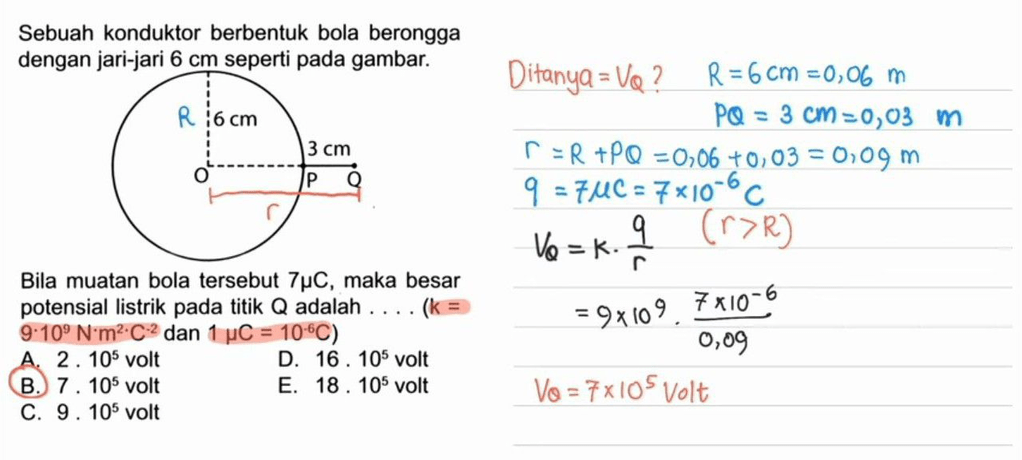 Sebuah konduktor berbentuk bola berongga
dengan jari-jari 6 cm seperti pada gambar.
R 6 cm
3 cm
O P Q
r
Bila muatan bola tersebut 7μC, maka besar
potensial listrik pada titik Q adalah . . . . (k =
9·10⁹ N·m²·C⁻² dan 1 μC = 10⁻⁶C)
A. 2 . 10⁵ volt D. 16 . 10⁵ volt
B. 7 . 10⁵ volt E. 18 . 10⁵ volt
C. 9 . 10⁵ volt
Ditanya = V_Q ? R = 6 cm = 0,06 m
PQ = 3 cm = 0,03 m
r = R + PQ = 0,06 + 0,03 = 0,09 m
q = 7μC = 7 × 10⁻⁶ C
V_Q = k . q/r (r > R)
= 9 × 10⁹ . 7 × 10⁻⁶ / 0,09
V_Q = 7 × 10⁵ Volt